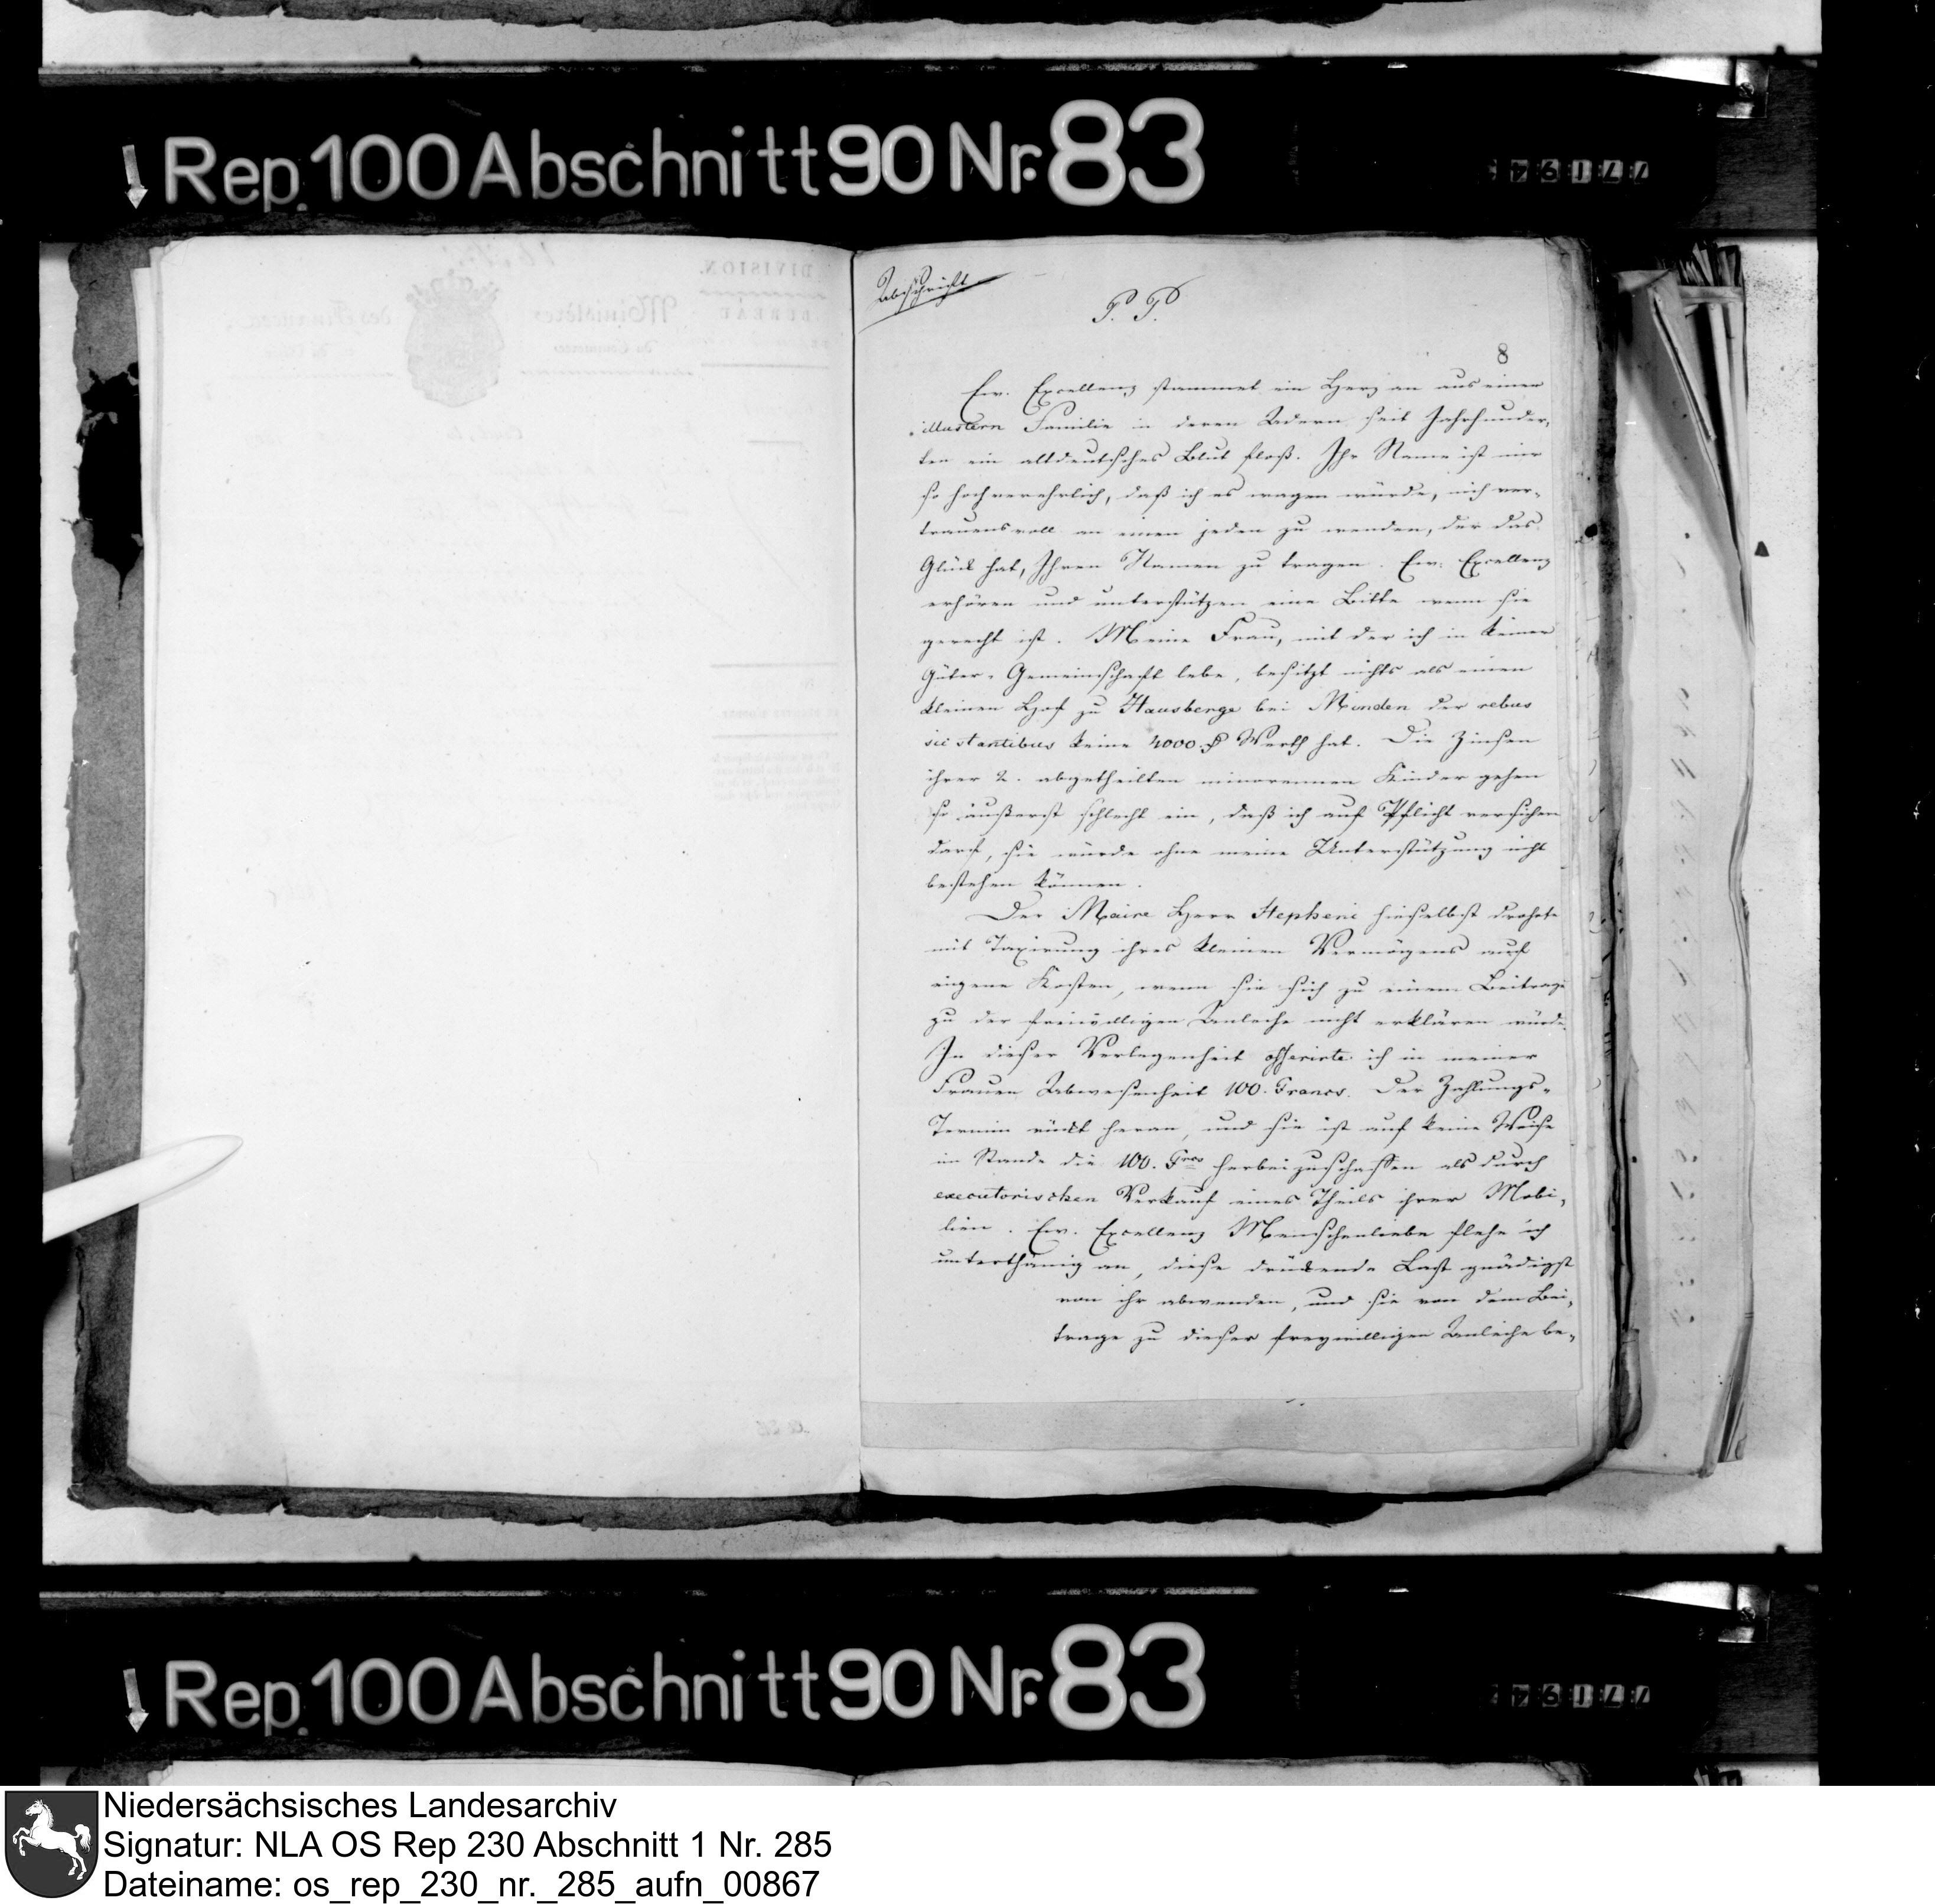 Rep. 100 Abschnitt 90 Nr. 83
Abschrift
P. P.
8
Ew. Excellenz stammet ein Herz an aus einer
illustern Familie in deren Adern seit Jahrhunder-
ten ein altdeutsches Blut floß. Ihr Name ist mir
so hochverehrlich, daß ich es wagen würde, mich ver-
trauensvoll an einen jeden zu wenden, der das
Glück hat, Ihren Namen zu tragen. Ew. Excellenz
erhören und unterstützen eine Bitte wenn sie
gerecht ist. Meine Frau, mit der ich in keiner
Güter-Gemeinschaft lebe, besitzt nichts als einen
kleinen Hof zu Hausberge bei Minden der rebus
sic stantibus keine 4000 Werth hat. Die Zinsen
ihrer 2. abgetheilten minorennen Kinder gehen
so äußerst schlecht ein, daß ich auf Pflicht versichern
darf, sie würde ohne meine Unterstützung nicht
bestehen können.
Der Maire Herr Stepheni hieselbst drohete
mit Taxirung ihres kleinen Vermögens auf
eigene Kosten, wenn sie sich zu einem Beitrage
zu der freiwilligen Anleihe nicht erklären würde.
In dieser Verlegenheit offerirte ich in meiner
Frauen Abwesenheit 100. Francs. Der Zahlungs-
Termin rückt heran, und sie ist auf keine Weise
im Stande die 100. Frcs herbeizuschaffen als durch
executorischen Verkauf eines Theils ihrer Mobi-
lien. Ew. Excellenz Menschenliebe flehe ich
unterthänig an, diese drückende Last gnädigst
von ihr abwenden, und sie von dem Bei-
trage zu dieser freywilligen Anleihe be-
Rep. 100 Abschnitt 90 Nr. 83
Niedersächsisches Landesarchiv
Signatur: NLA OS Rep 230 Abschnitt 1 Nr. 285
Dateiname: os_rep_230_nr._285_aufn_00867